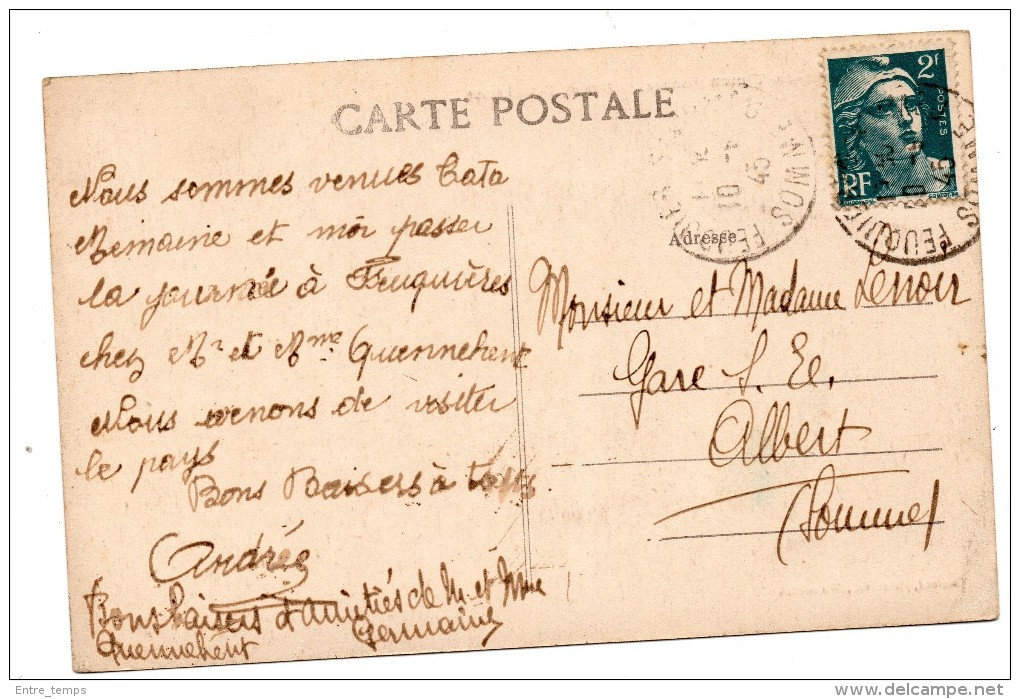 CARTE POSTALE
2f
POSTES
RF
FEUQUIÈRES
SOMME
10
45
FEUQUIÈRES
SOMME
10
45
Nous sommes venues Tata
Germaine et moi passer
la journée à Feuquières
chez Mr et Mme Quennehent
Nous venons de visiter
le pays
Bons Baisers à tous
Andrée
Bons baisers d'amitiés de M et Mme
Quennehent Germaine
Adresse
Monsieur et Madame Lenoir
Gare S. Ec.
Albert
(Somme)
Entre_temps
delcampe.net